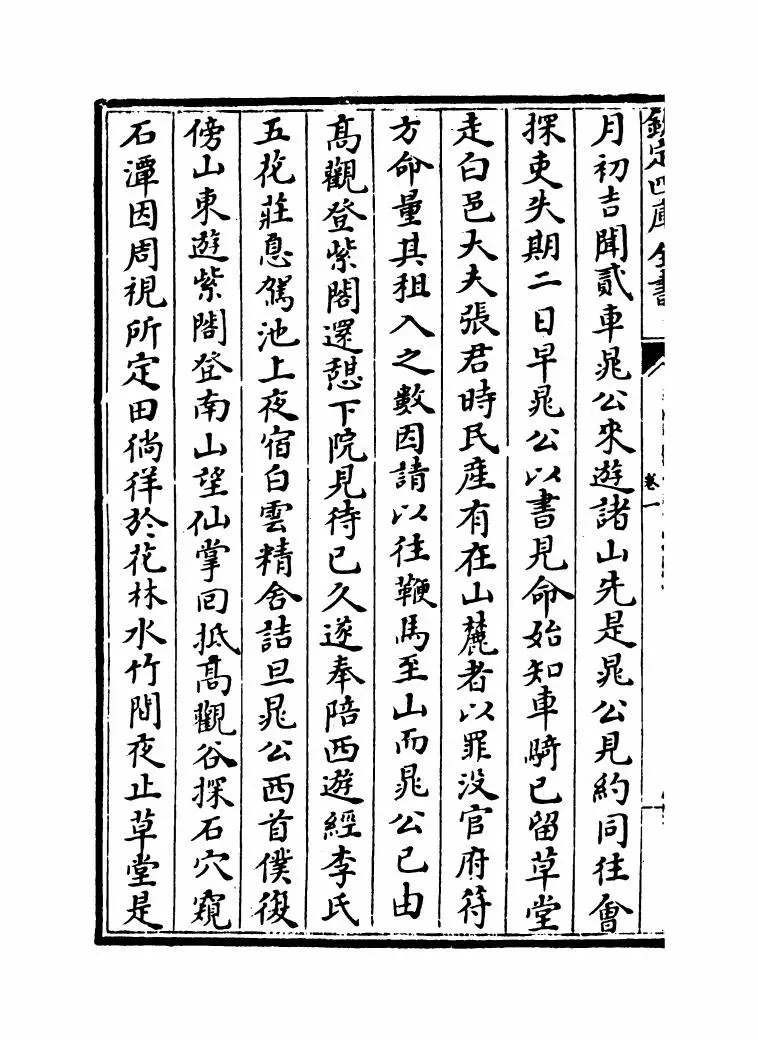 欽定四庫全書
卷一
月初吉聞貳車晁公來遊諸山先是晁公見約同往會
探吏失期二日早晁公以書見命始知車騎已留草堂
走白邑大夫張君時民産有在山麓者以罪没官府符
方命量其租入之數因請以往鞭馬至山而晁公已由
髙觀登紫閣還憇下院見待已久遂奉陪西遊經李氏
五花莊息駕池上夜宿白雲精舍詰旦晁公西首僕復
傍山東遊紫閣登南山望仙掌回抵髙觀谷探石穴窺
石潭因周視所定田徜徉於花林水竹間夜止草堂是